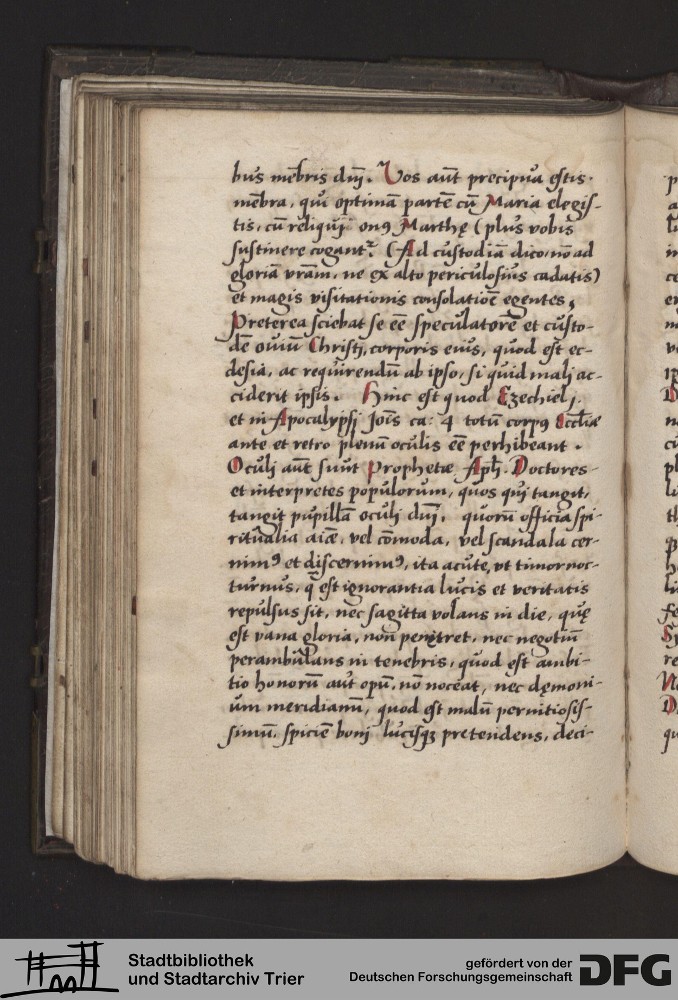 bus mẽbris dñj. Vos aũt precipua estis
mẽbra, qui optimã partẽ cũ Maria elegis-
tis, cũ reliquj onꝰ Marthę (plus vobis
sustinere cogant᷑. (Ad custodiã dico, nõ ad
gloriã vrãm, ne ex alto periculosius cadatis)
et magis visitationis consolatiõe egentes,
Preterea sciebat se eẽ speculatorẽ et custo-
dẽ ouiũ Christj, corporis eius, quod est ec-
clesia, ac requirendũ ab ipso, si quid malj ac-
ciderit ipsis. Hinc est quod Ezechielj.
et in Apocalypsj Joĩs ca: 4 totũ corpꝰ Eccl̃iæ
ante et retro plenũ oculis eẽ perhibeant.
Oculj aũt sunt Prophetæ Apl̃j. Doctores
et interpretes populorum, quos quj tangit,
tangit pupillã oculj dñj, quorũ officia spi-
ritualia aĩcẽ, vel cõmoda, vel scandala cer-
nimꝰ et discernimꝰ, ita acute, vt timor noc-
turnus, q̃ est ignorantia lucis et veritatis
repulsus sit, nec sagitta volans in die, quę
est vana gloria, non penetret, nec negotiũ
perambulans in tenebris, quod est ambi-
tio honorũ aut opũ, nõ noceat, nec dęmoni-
um meridianũ, quod est malũ pernitiosis-
simũ, spiciẽ bonj lucisqꝫ pretendens, deci-
Stadtbibliothek
und Stadtarchiv Trier
gefördert von der
Deutschen Forschungsgemeinschaft
DFG